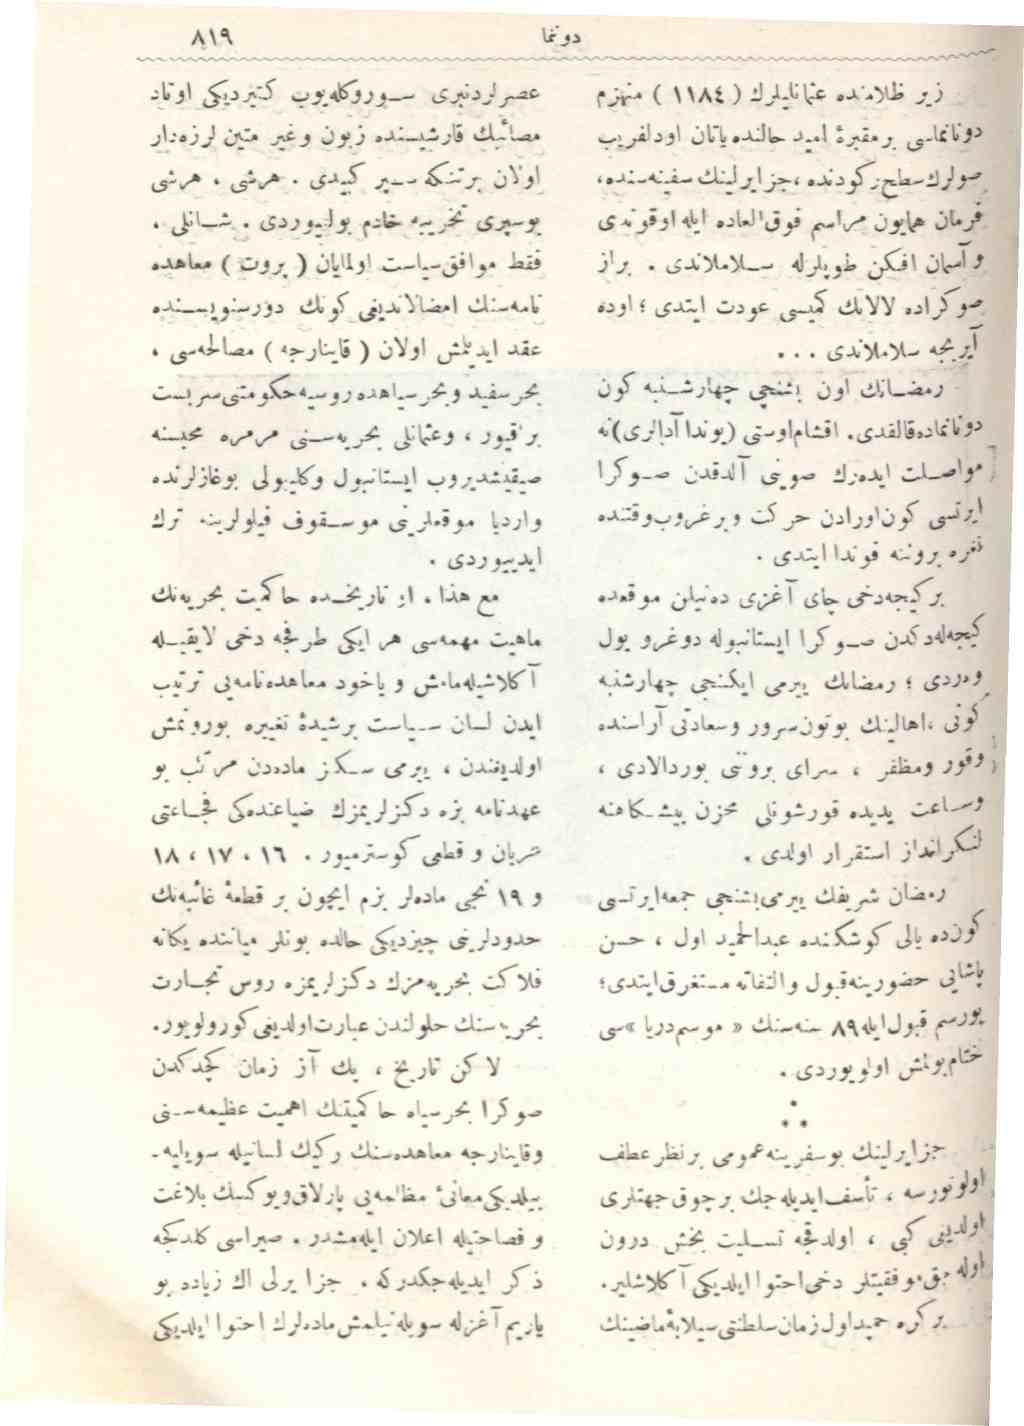 دوننما
٨١٩
زير ظلامنده عثمانليلرك ( ١١٨٤ ) منهزم
دوناتماسى بر مقبرۀ اميد حالنده ياتان اودلفريب
صولرك سطح ركودنده ، جزايرلينك سفينه‌سنده،
فرمان همايون مراسم فوق العاده ايله اوقوندى
و آسمان افكن طوپلرله سلاملاندى . براز
صوكراده لالانك كميسى عودت ايتدى ؛ اوده
آيريجه سلاملاندى ...
رمضانك اون بشنجى چهارشنبه كون
دونانماده‌قالقدى. اقشام‌اوستى (بوندا آدالرى)نه
مواصلت ايده‌رك صوينى آلدقدن صوكرا
ايرتسى كون‌اورادن حركت وبرغروب‌وقتنده
نغره بروننه فوندا ايتدى .
بركيجه‌دخى چاى آغزى ده‌نيلن موقعده
كيجه‌له‌دكدن صوكرا ايستانبوله دوغرو يول
ويردى ؛ رمضانك يكرمى ايكنجى چهارشنبه
كونى ،اهالينك بوتون‌سرور وسعادتى آراسنده
وقور ومظفر ، سراى بروننى بوردالادى ،
وساعت يديده قورشونلى مخزن پيشكاهنه
لنكرانداز استقرار اولدى .
رمضان شريفك يكرمى‌بشنجى جمعه‌ايرتسى
كون‌ده يالى كوشكنده عبدالحميد اول ، حسن
پاشايى حضورينه‌قبول والتفاته مستغرق‌ايتدى؛
بورسم قبول‌ايله ٨٩ سنه‌سنك « موسم‌دريا »سى
ختام‌بولمش اولويوردى .
* * *
جزايرلينك بوسفرينه‌عمومى برنظر عطف
اولونورسه ، تأسف‌ايديله‌جك برچوق جهتلرى
اولدينى كبى ، اولدقجه تسليت بخش درون
اوله‌جق‌موفقيتلر دخى‌احتوا ايلديكى آكلاشلير.
بركره حميداول زمان‌سلطنتى‌سيلابۀ‌ماضينك
عصرلردنبرى سوروكله‌يوب كتيرديكى اوتاد
مصائبك قارشيسنده زبون وغير متين لرزه‌دار
اولان برتنكه سپر كبيدى . هرشى ، هرشى
بوسپرى تخريبه خادم بولنيوردى . شانلى ،
فقط موافق‌سياست اولمايان ( پروت ) معاهده
نامه‌سنك امضالانديغى كونك دورسنويسنده
عقد ايديلمش اولان ( قاينارجه ) مصالحه‌سى ،
بحرسفيد وبحرسياهده روسيه‌حكومتنى‌سربست
براقيور ، وعثمانلى بحريه‌سنى مرمره محبسنه
صيقيشديروب ايستانبول وكليبولى بوغازلرنده
وارديا موقعلرينى موسقوف فيلولرينه ترك
ايدييوردى .
مع هذا ، او تاريخده حاكميت بحريه‌نك
ماهيت مهمه‌سى هر ايكى طرفجه دخى لايقيله
آكلاشيله‌مامش و ياخود معاهده‌نامه‌يى ترتيب
ايدن لسان سياست برشيدۀ تغييره بورونمش
اولديغندن ، يكرمى سكز ماده‌دن مرتب بو
عهدنامه بزه دكزلريمزك ضياعنده‌كى فجاعتى
عريان و قطعى كوسترميور . ١٦ ، ١٧ ، ١٨
و ١٩ نجى ماده‌لر بزم ايچون بر قطعۀ غائبه‌نك
حدودلرينى چيزديكى حالده بونلر مياننده يكانه
فلاكت بحريه‌مزك دكزلريمزه روس تجارت
بحريه‌سنك حلولندن عبارت‌اولدينى‌كورولويور.
لاكن تاريخ ، پك آز زمان كچدكدن
صوكرا بحرسياه حاكميتنك اهميت عظيمه‌سنى
وقاينارجه معاهده‌سنك ركيك لسانيله سويليه ـ
بيلديكى‌معانئ مظالمه‌يى پارلاق‌ويوكسك بلاغت
و فصاحتيله اعلان ايله‌مشدر . صيراسى كلدكجه
ذكر ايديله‌جكدركه ، جزايرلى اك زياده بو
ياريم آغزله سويله‌نيلمش ماده‌لرك احتوا ايلديكى